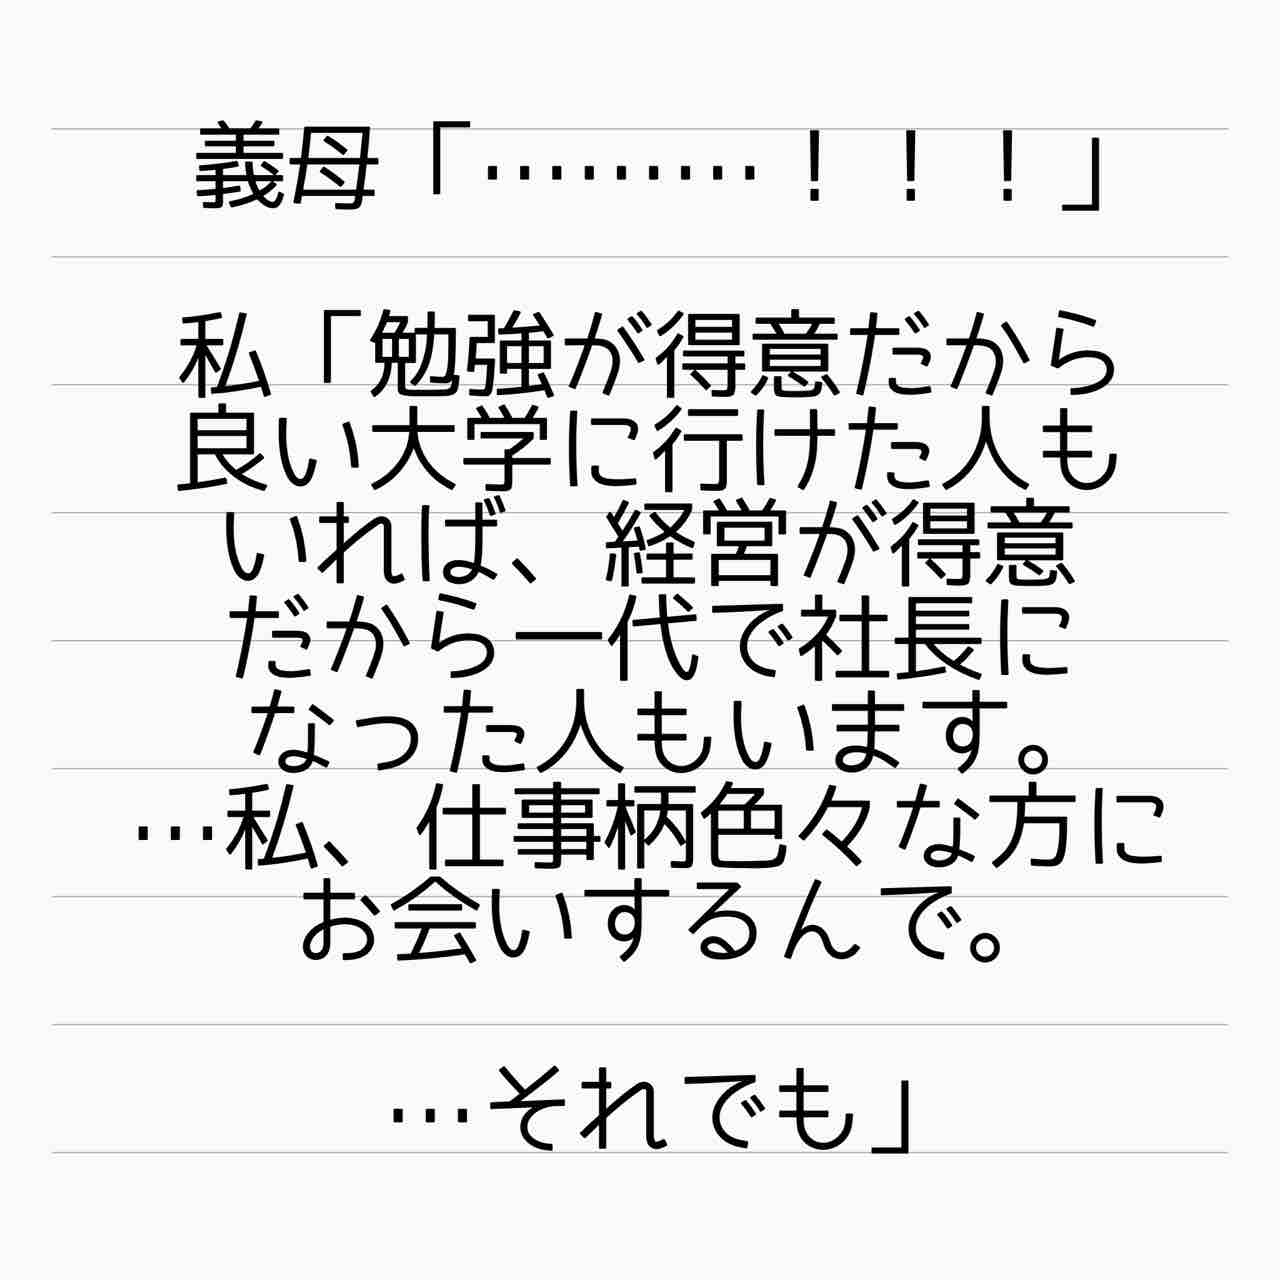 義母「………！！！」
私「勉強が得意だから
良い大学に行けた人も
いれば、経営が得意
だから一代で社長に
なった人もいます。
…私、仕事柄色々な方に
お会いするんで。
…それでも」